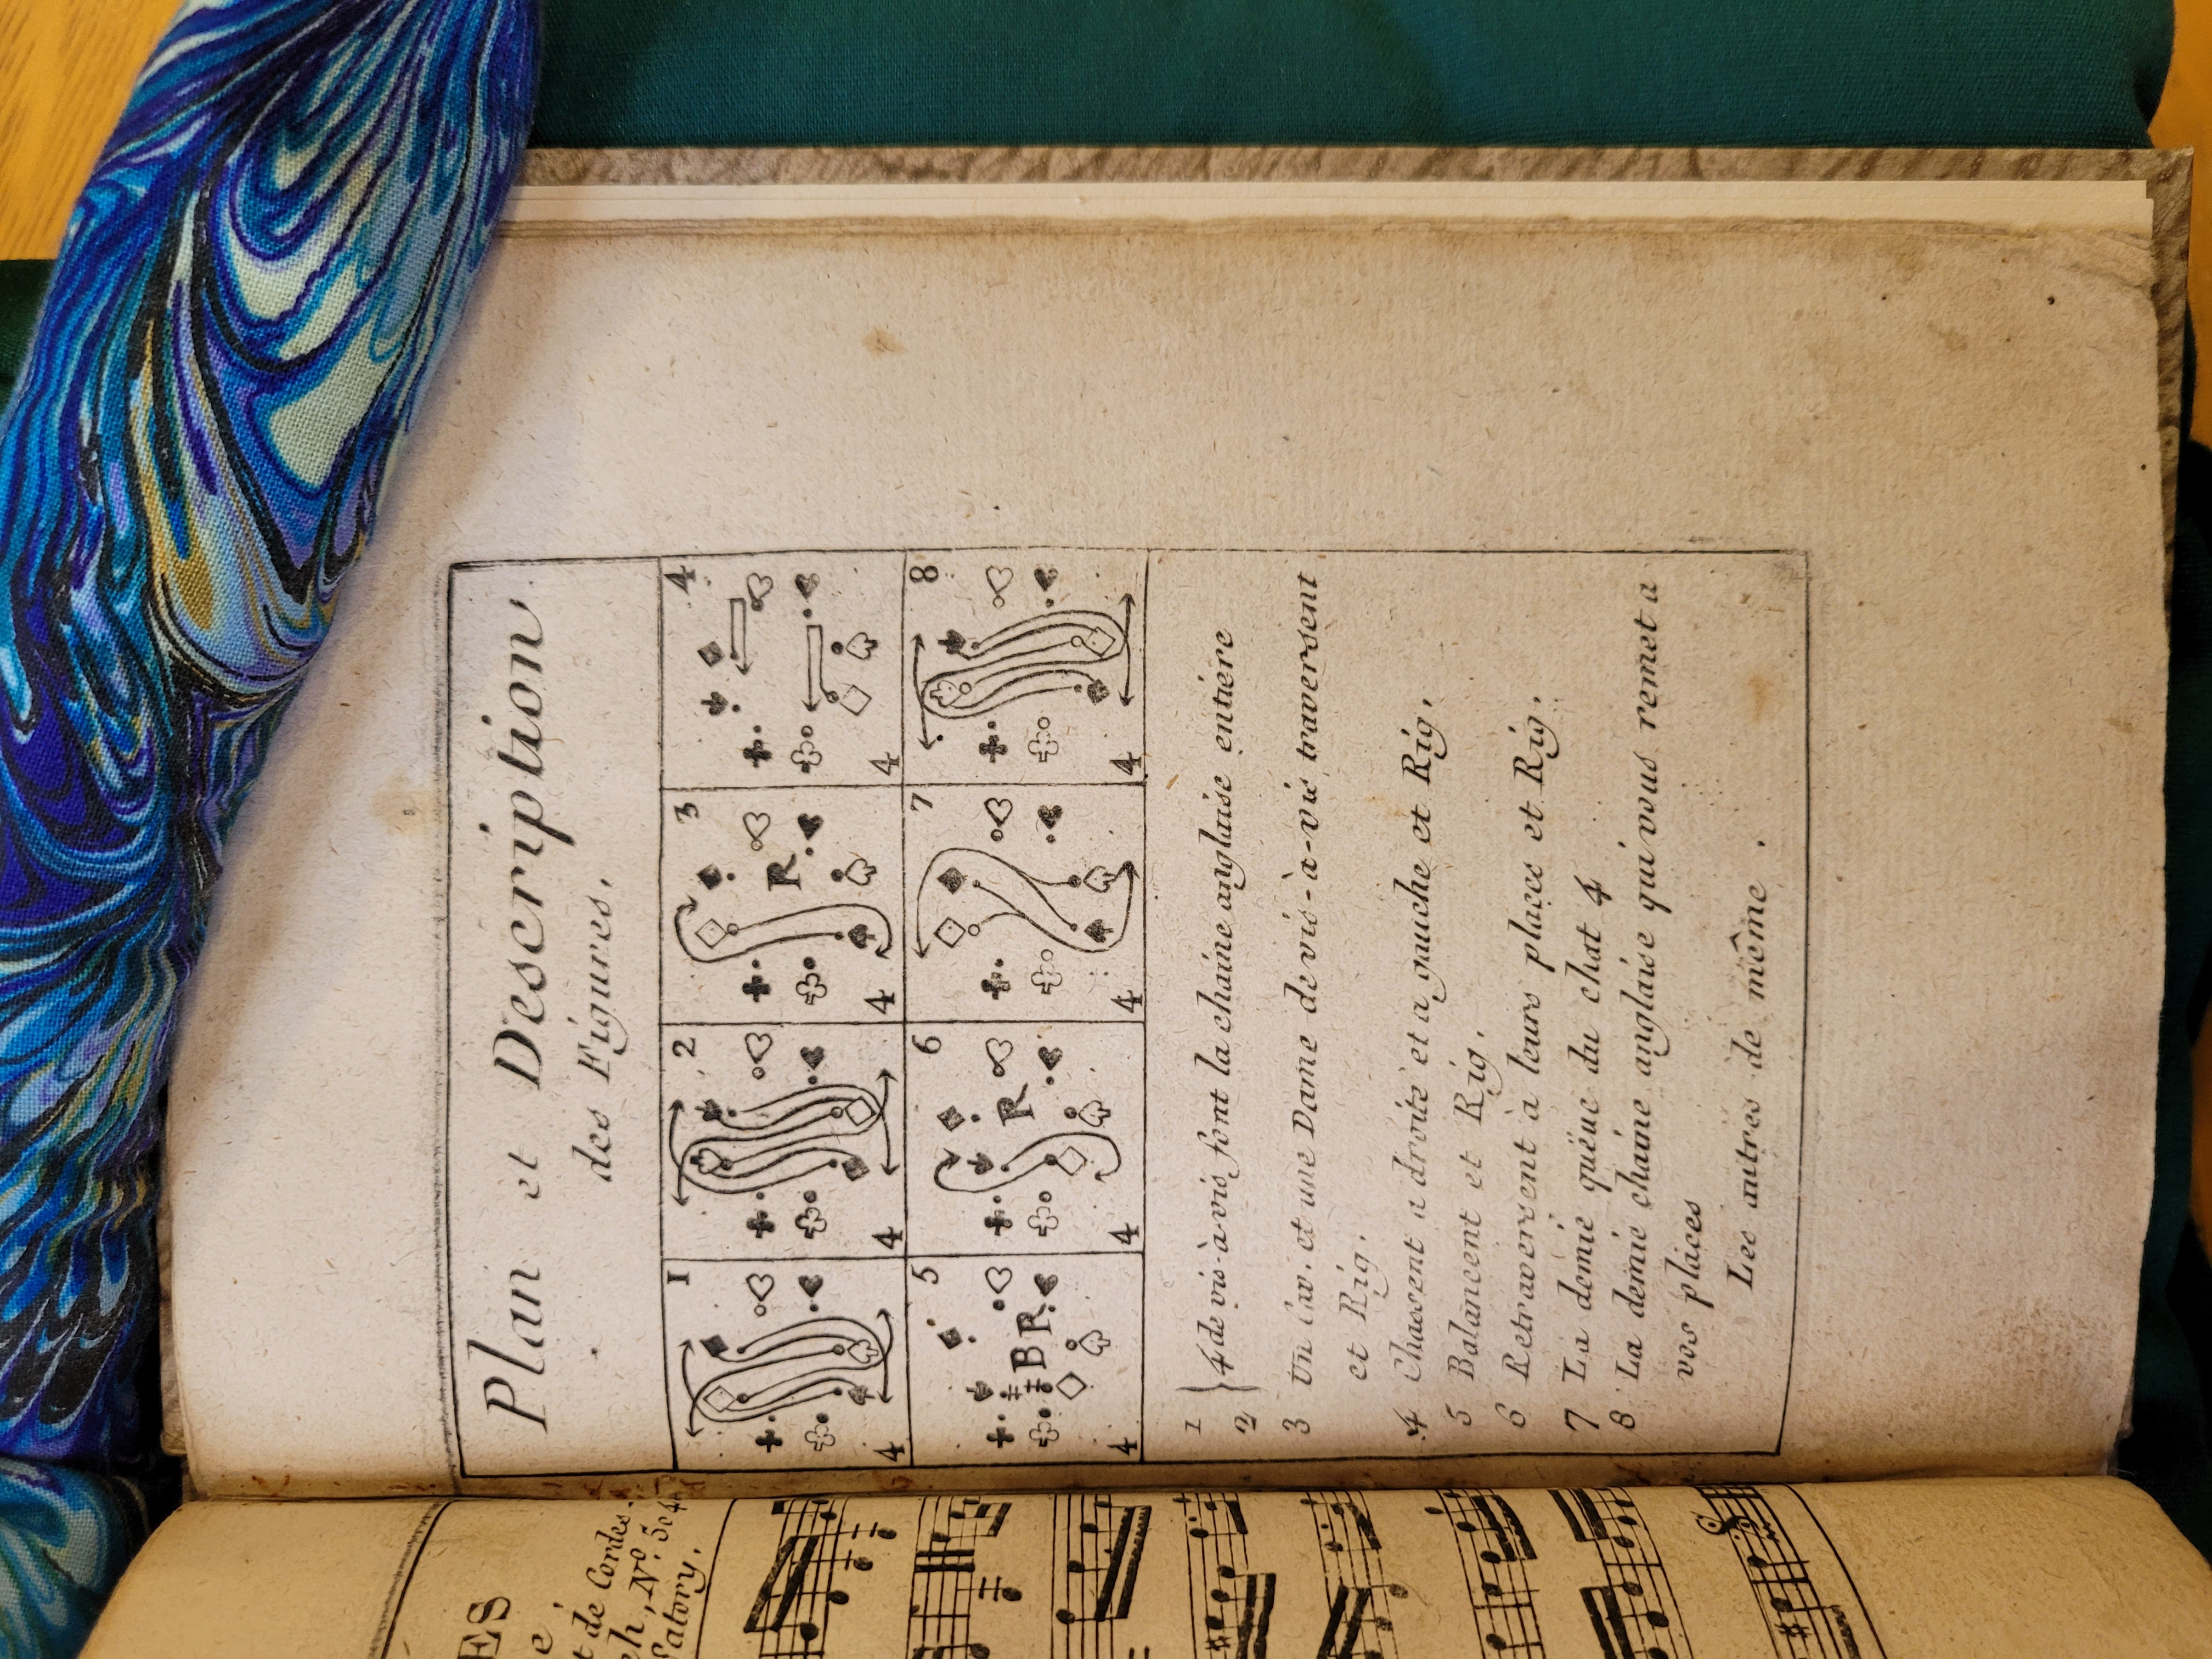 Plan et Description
des Figures.
1 2 3 4
4 R 4 4
4
5 6 7 8
BR R
4 4 4 4
1 } 4 de vis-à-vis font la chaine anglaise entiere
2
3 Un Cav. et une Dame de vis-à-vis traversent
et Rig.
4 Chassent a droite et a gauche et Rig.
5 Balancent et Rig.
6 Retraversent à leurs places et Rig.
7 La demie quëue du chat 4
8 La demie chaine anglaise qui vous remet a
vos places
Les autres de même.
ES
é
t de Cordes-
ch, N.º
Fatory.